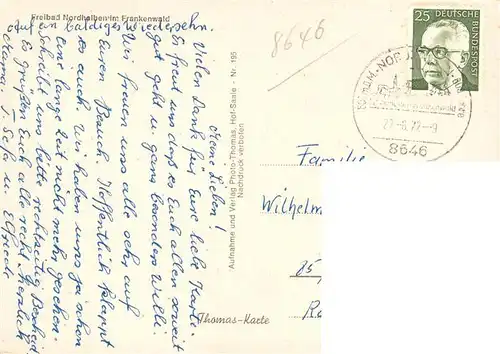 Freibad Nordhalben im Frankenwald
auf ein baldiges Wiedersehn.
Meine Lieben!
Vielen Dank für Eure liebe Karte.
Es freut uns daß es Euch allen soweit
gut geht u. ganz besonders Willi
Wir freuen uns alle sehr auf
Euren Besuch. Hoffentlich klappt
es auch. Wir haben uns ja schon
eine lange Zeit nicht mehr gesehen.
Schreibt uns bitte rechtzeitig Bescheid
Es grüßen Euch alle recht herzlich
Mama, T. Sofa u. Elfriede
Aufnahme und Verlag Photo-Thomas, Hof-Saale - Nr. 195
Nachdruck verboten
Thomas-Karte
8646
25 DEUTSCHE
BUNDESPOST
8646
Familie
Wilhelm
85